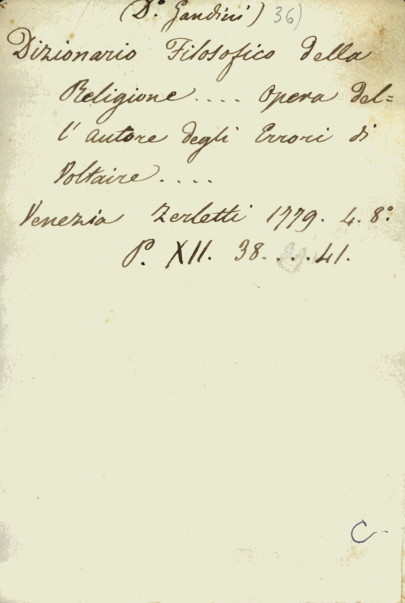 (D.º Gandini) 36)
Dizionario Filosofico della
Religione.... Opera del=
l'autore degli Errori di
Voltaire....
Venezia Zerletti 1779. 4. 8.º
P. XII. 38....41.
C